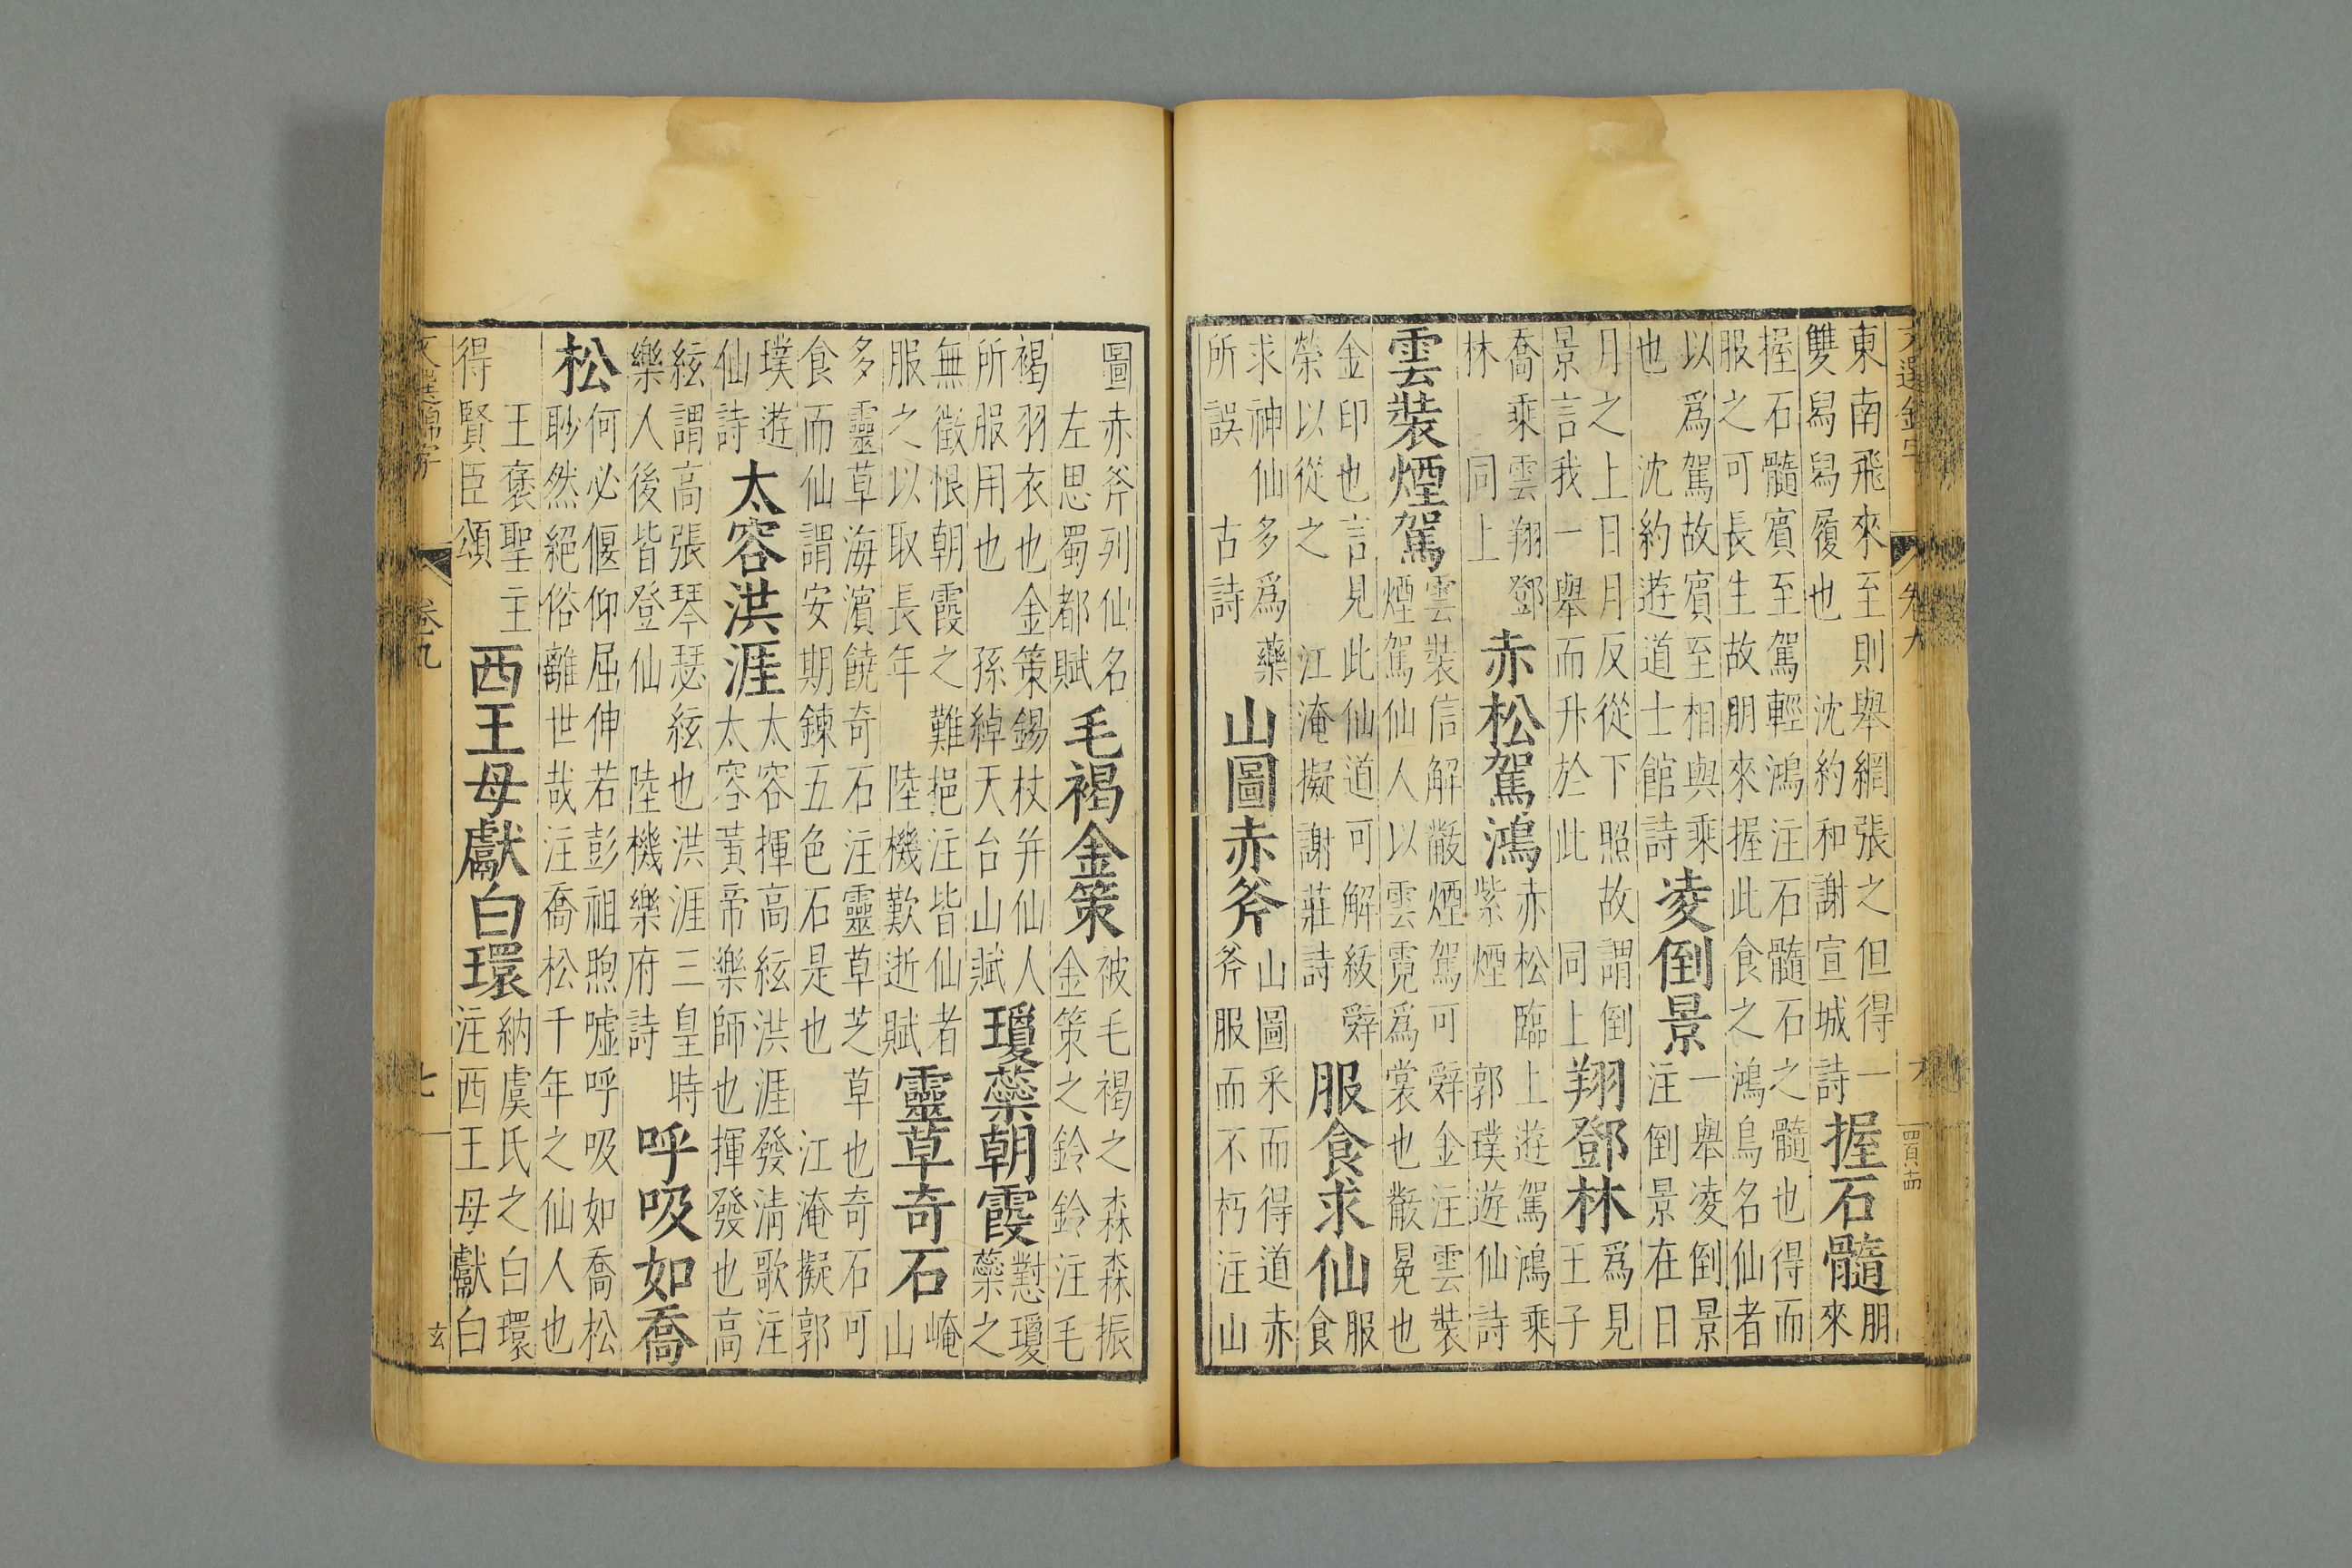 東南飛來至則舉網張之但得一雙舄舄履也 沈約和謝宣城詩 握石髓 朋來
握石髓賓至駕輕鴻注石髓石之髓也得而服之可長生故朋來握此食之鴻鳥名仙者
以爲駕故賓至相與乘也 沈約遊道士館詩 凌倒景 一舉凌倒景注倒景在日
月之上日月反從下照故謂倒景言我一舉而升於此 同上 翔鄧林 爲見王子
喬乘雲翔鄧林 同上 赤松駕鴻 赤松臨上遊駕鴻乘紫煙 郭璞遊仙詩
雲裝煙駕 雲裝信解黻煙駕可辤金注雲裝煙駕仙人以雲霓爲裳也黻冕也
金印也言見此仙道可解紱辤榮以從之 江淹擬謝莊詩 服食求仙 服食
求神仙多爲藥所誤 古詩 山圖赤斧 山圖采而得道赤斧服而不朽注山
圖赤斧列仙名 左思蜀都賦 毛褐金策 被毛褐之森森振金策之鈴鈴注毛
褐羽衣也金策錫杖并仙人所服用也 孫綽天台山賦 瓊蘂朝霞 懟瓊蘂之
無徵恨朝霞之難挹注皆仙者服之以取長年 陸機歎逝賦 靈草奇石 崦山
多靈草海濱饒奇石注靈草芝草也奇石可食而仙謂安期鍊五色石是也 江淹擬郭
璞遊仙詩 太容洪涯 太容揮高絃洪涯發清歌注太容黃帝樂師也揮發也高
絃謂高張琴瑟絃也洪涯三皇時樂人後皆登仙 陸機樂府詩 呼吸如喬
松 何必偃仰屈伸若彭祖煦噓呼吸如喬松眇然絕俗離世哉注喬松千年之仙人也
王褒聖主得賢臣頌 西王母獻白環 納虞氏之白環注西王母獻白
卷九 七 玄